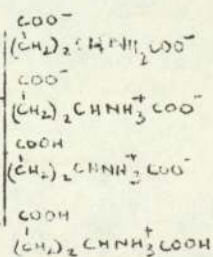 COO⁻
(CH₂)₂CHNH₂COO⁻
COO⁻
(CH₂)₂CHNH₃⁺COO⁻
COOH
(CH₂)₂CHNH₃⁺COO⁻
COOH
(CH₂)₂CHNH₃⁺COOH